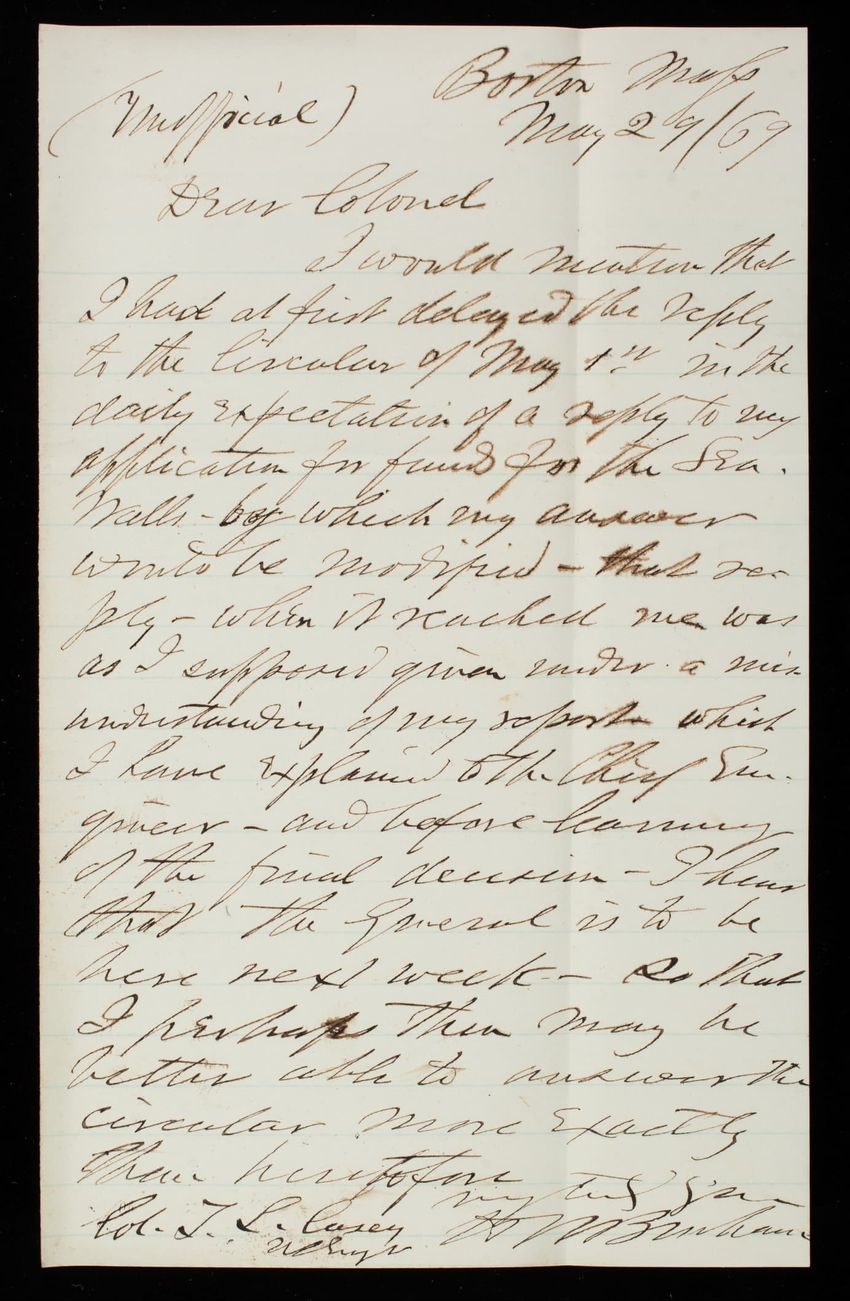 Boston Mass
(Unofficial) May 29/69
Dear Colonel
I would mention that
I had at first delayed the reply
to the Circular of May 1st in the
daily expectation of a reply to my
application for funds for the Sea-
Walls - by which my answer
would be modified - that re-
ply - when it reached me was
as I supposed given under a mis-
understanding of my report which
I have explained to the Chief En-
gineer - and before learning
of the final decision - I hear
that the General is to be
here next week - so that
I perhaps then may be
better able to answer the
circular more exactly
than heretofore
Col. T. L. Casey
US Engrs
H W Benham